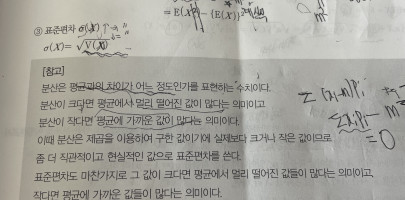 = E(X²) - {E(X)}²
③ 표준편차 σ(X)
σ(X) = √V(X)
[참고]
분산은 평균과의 차이가 어느 정도인가를 표현하는 수치이다.
분산이 크다면 평균에서 멀리 떨어진 값이 많다는 의미이고
분산이 작다면 평균에 가까운 값이 많다는 의미이다.
이때 분산은 제곱을 이용하여 구한 값이기에 실제보다 크거나 작은 값이므로
좀 더 직관적이고 현실적인 값으로 표준편차를 쓴다.
표준편차도 마찬가지로 그 값이 크다면 평균에서 멀리 떨어진 값들이 많다는 의미이고,
작다면 평균에 가까운 값들이 많다는 의미이다.
= 0